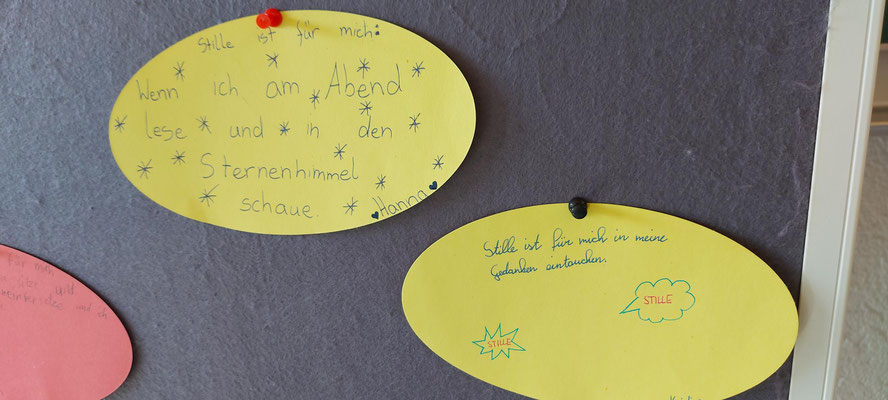 Stille ist für mich:
Wenn ich am Abend
lese und in den
Sternenhimmel
schaue.
Hanna
Stille ist für mich in meine
Gedanken eintauchen.
STILLE
STILLE
für mich